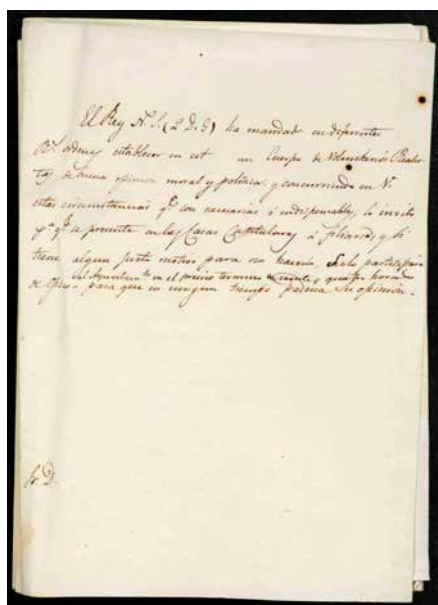 El Rey N. S. (Q. D. G.) ha mandado en diferentes
Rs. ordenes establecer en est un Cuerpo de Voluntarios Realis
tas de buena opinion moral y politica; y concurriendo en V.
estas circunstancias qe. son necesarias é indispensables, le invito
pa. qe. se presente en las Casas Capitulares á filiarse, y si
tiene algun justo motivo para no hacerlo, Selo participará
al Ayuntamto. en el preciso termino de veinte y quatro horas
de oficio para que en ningun tiempo padezca su opinion.
Sr. D.